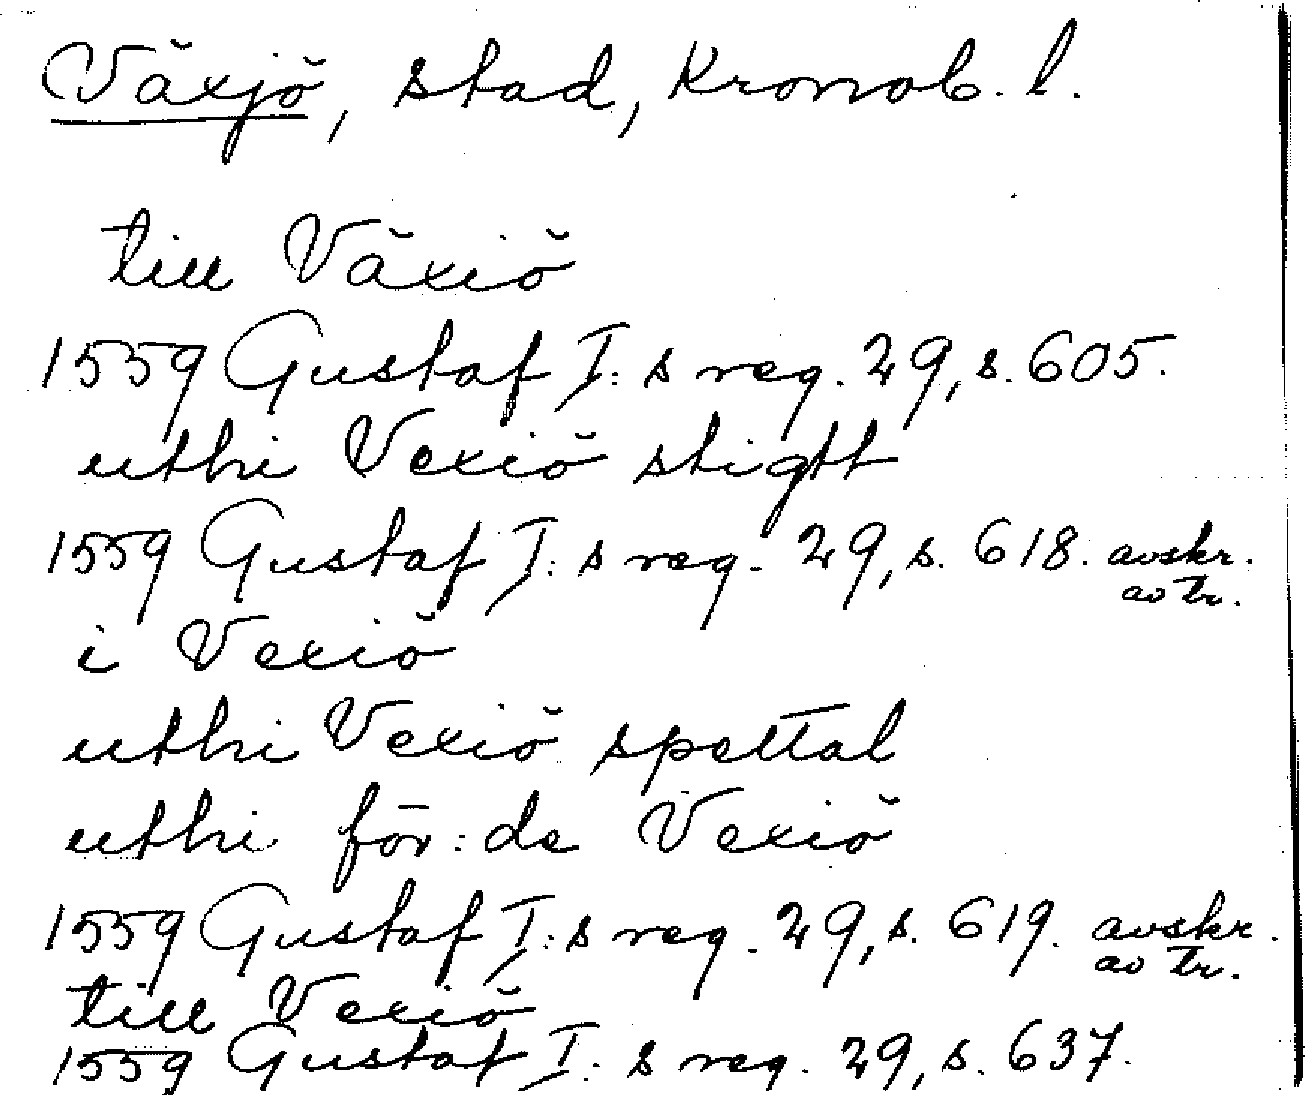 Växjö, stad, Kronob. l.
till Växiö
1559 Gustaf I:s reg. 29, s. 605.
uthi Vexiö stigtt
1559 Gustaf I:s reg. 29, s. 618. avskr.
av tr.
i Vexiö
uthi Vexiö spettal
uthi för:de Vexiö
1559 Gustaf I:s reg. 29, s. 619. avskr.
av tr.
till Vexiö
1559 Gustaf I:s reg. 29, s. 637.